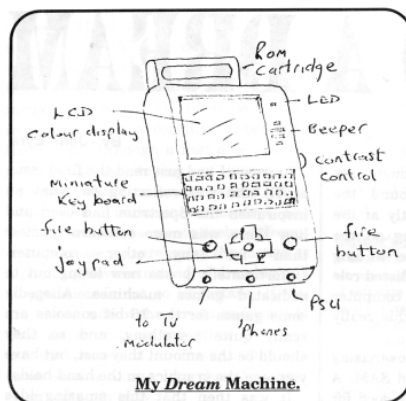 ROM
Cartridge
LCD
colour display
LED
Beeper
Contrast
control
Miniature
Key board
fire button
fire
button
joypad
PSU
To TV
Modulator
'Phones
My Dream Machine.